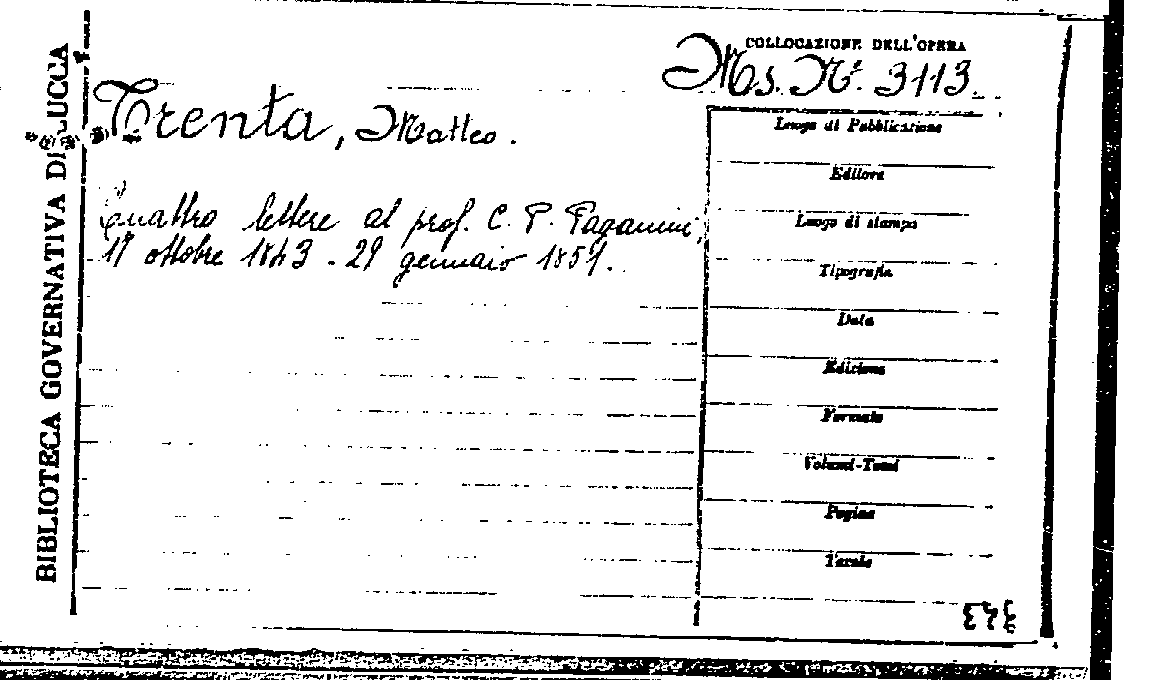 BIBLIOTECA GOVERNATIVA DI LUCCA
COLLOCAZIONE DELL'OPERA
Ms. N.º 3113.
Trenta, Matteo.
Quattro lettere al prof. C. P. Paganini;
17 ottobre 1843 - 29 gennaio 1851.
Luogo di Pubblicazione
Editore
Luogo di stampa
Tipografia
Data
Edizione
Formato
Volumi-Tomi
Pagine
Tavole